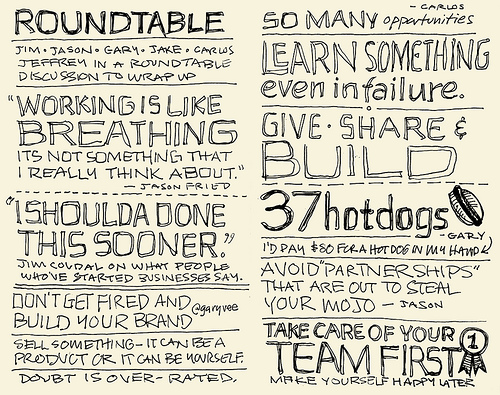 ROUNDTABLE
JIM · JASON · GARY · JAKE · CARLOS
JEFFREY IN A ROUNDTABLE
DISCUSSION TO WRAP UP
"WORKING IS LIKE
BREATHING
ITS NOT SOMETHING THAT
I REALLY THINK ABOUT."
- JASON FRIED
"I SHOULDA DONE
THIS SOONER."
JIM COUDAL ON WHAT PEOPLE
WHO'VE STARTED BUSINESSES SAY.
DON'T GET FIRED AND
BUILD YOUR BRAND @garyvee
SELL SOMETHING - IT CAN BE A
PRODUCT OR IT CAN BE YOURSELF.
DOUBT IS OVER-RATED.
- CARLOS
SO MANY opportunities
LEARN SOMETHING
even in failure.
GIVE · SHARE &
BUILD
37hotdogs
- GARY
I'D PAY $80 FOR A HOT DOG IN MY HAND
AVOID "PARTNERSHIPS"
THAT ARE OUT TO STEAL
YOUR MOJO - JASON
TAKE CARE OF YOUR
TEAM FIRST 1
MAKE YOURSELF HAPPY LATER